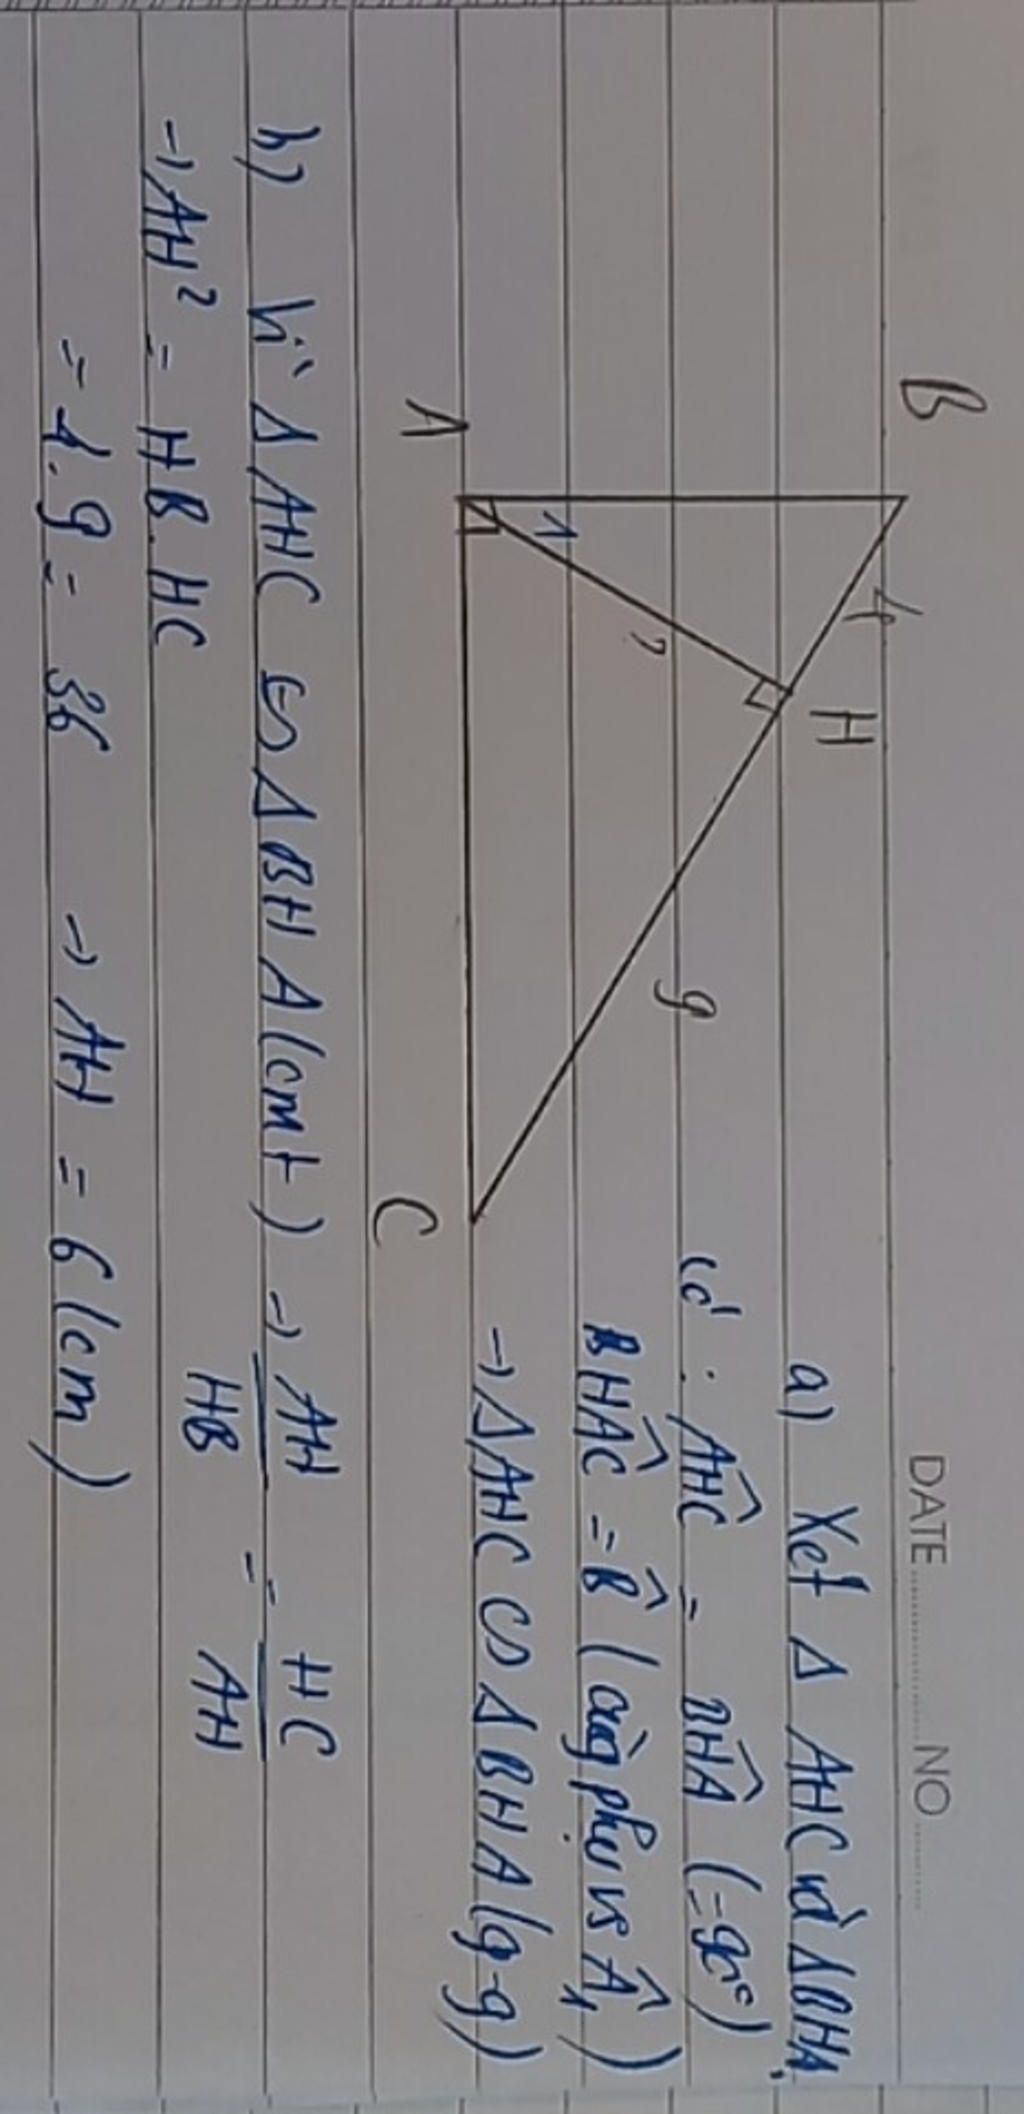 DATE NO
B
4
H
a) Xét Δ AHC và Δ BHA
có : AHC = BHA (=90°)
1
?
9
HAC = B (cùng phụ vs A1)
A
→ Δ AHC ∽ Δ BHA (g-g)
C
b) Vì Δ AHC ∽ Δ BHA (cmt) → AH/HB = HC/AH
→ AH² = HB. HC
= 4. 9 = 36 → AH = 6 (cm)